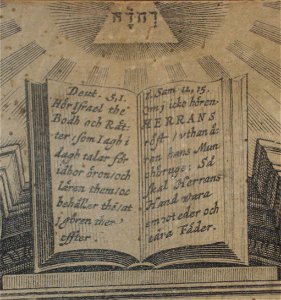 יְהֹוָה
Deut. 5,1.
Hör Israel the
Bodh och Rät-
ter, som Iagh i
dagh talar för
idhor öron, och
lären them, oc
behåller thē, at
j gören ther
effter.
1. Sam 12, 15.
om j icke hören
HERRANS
röst, uthan ä-
ren hans Mun
ohörige: Så
skal Herrans
Hand wara
emot eder och
edra Fäder.